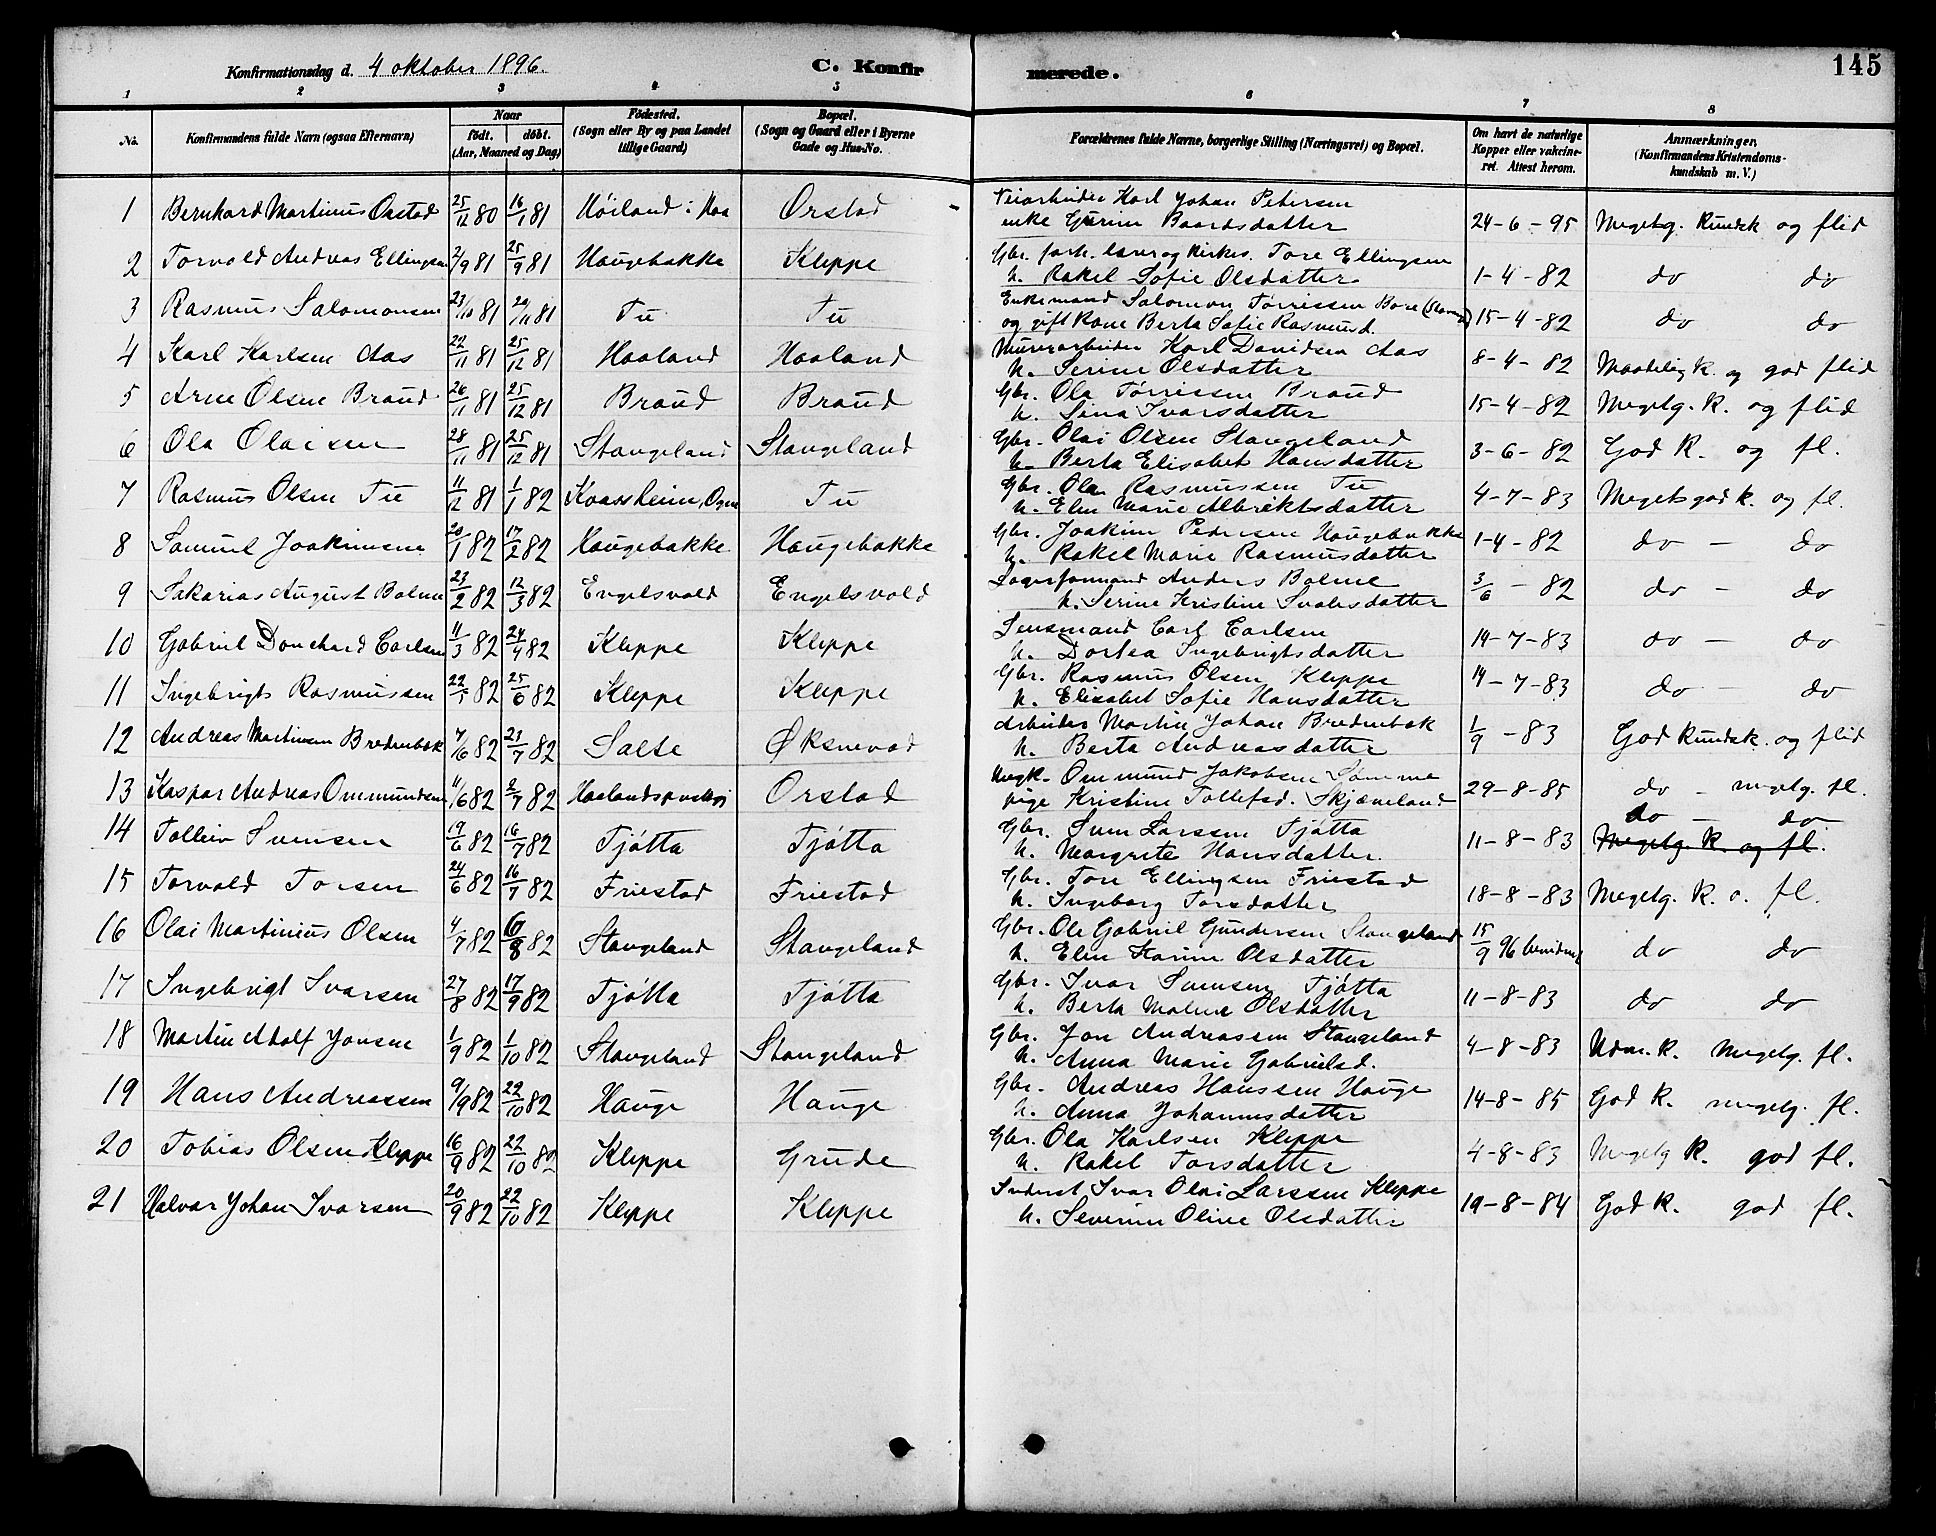 145
Konfirmationsdag d. 4 oktober 1896. C. Konfirmerede.
1 2 3 4 5 6 7 8
No. Konfirmandens fulde Navn (ogsaa Efternavn) Naar födt. döbt. (Aar, Maaned og Dag) Födested. (Sogn eller By og paa Landet tillige Gaard) Bopæl. (Sogn og Gaard eller i Byerne Gade og Hus-No. Forældrenes fulde Navne, borgerlige Stilling (Næringsvei) og Bopæl. Om havt de naturlige Kopper eller vakcineret. Attest herom. Anmærkninger. (Konfirmandens Kristendomskundskab m. V.)
1 Bernhard Martinus Orstad 25/12 80 16/1 81 Höiland i Haa Orstad Veiarbeider Karl Johan Petersen
enke Gurine Baardsdatter 24-6-95 Megetg. Kundsk og flid
2 Torvald Andreas Ellingsen 2/9 81 25/9 81 Haugebakke Kleppe Gbr. forh. lærer og Kirkes. Tore Ellingsen
h. Rakel Sofie Olsdatter 1-4-82 do do
3 Rasmus Salomonsen 23/10 81 20/11 81 Tu Tu Enkemand Salomon Tørrissen Bore
og gift Kone Berta Sofie Rasmusd. 15-4-82 do do
4 Karl Karlsen Aas 22/11 81 25/12 81 Haaland Haaland Murerarbeider Karl Davidsen Aas
h. Serine Olsdatter 8-4-82 Maadelig K. og god flid
5 Arne Olsen Braud 26/11 81 25/12 81 Braud Braud Gbr. Ola Tørrissen Braud
h. Sina Ivarsdatter 15-4-82 Megetg. K. og flid
6 Ola Olaisen 28/11 81 25/12 81 Stangeland Stangeland Gbr. Olai Olsen Stangeland
h. Berta Elisabet Hansdatter 3-6-82 God K. og fl.
7 Rasmus Olsen Tu 11/12 81 1/1 82 Kvassheim, Ogne Tu Gbr. Ola Rasmussen Tu
h. Elen Marie Albrektsdatter 4-7-83 Megetgod K. og fl.
8 Samuel Joakimsen 20/1 82 17/2 82 Haugebakke Haugebakke Gbr. Joakim Pedersen Haugebakke
h. Rakel Marie Rasmusdatter 1-4-82 do - do
9 Sakarias August Bolme 23/2 82 12/3 82 Engelsvold Engelsvold Lagerformand Anders Bolme
h. Serine Kristine Svalesdatter 3/6 - 82 do - do
10 Gabriel Donchard Carlsen 11/3 82 24/4 82 Kleppe Kleppe Lensmand Carl Carlsen
h. Dortea Ingebrigtsdatter 14-7-83 do - do
11 Ingebrigts Rasmussen 22/5 82 25/6 82 Kleppe Kleppe Gbr. Rasmus Olsen Kleppe
h. Elisabet Sofie Hansdatter 14-7-83 do - do
12 Andreas Martinsen Bredenbæk 7/6 82 23/7 82 Salte Øksnevad Arbeider Martin Johan Bredenbæk
h. Berta Andreasdatter 1/9 - 83 God Kundsk. og flid
13 Kaspar Andreas Ommundsen 11/6 82 2/7 82 Orstad Ungk. Ommund Jakobsen Sømme
pige Kristine Tollefsd. Skjæveland 29-8-85 do - megetg. fl.
14 Tolleiv Svensen 19/6 82 16/7 82 Tjótta Tjótta Gbr. Sven Larssen Tjótta
h. Margrete Hansdatter 11-8-83 do - do
Megetg. K. og fl.
15 Torvald Torsen 24/6 82 16/7 82 Friestad Friestad Gbr. Tore Ellingsen Friestad
h. Ingeborg Torsdatter 18-8-83 Megetg. K. o. fl.
16 Olai Martinius Olsen 4/7 82 6/8 82 Stangeland Stangeland Gbr. Ole Gabriel Gundersen Stangeland
h. Elen Karine Olsdatter 15/9 96 do do
17 Ingebrigt Ivarsen 27/8 82 17/9 82 Tjótta Tjótta Gbr. Ivar Svensen Tjótta
h. Berta Malene Olsdatter 11-8-83 do do
18 Martin Adolf Jonsen 1/9 82 1/10 82 Stangeland Stangeland Gbr. Jon Andreassen Stangeland
h. Anna Marie Gabrielsd. 4-8-83 Udm. K. Megetg. fl.
19 Hans Andreassen 9/9 82 22/10 82 Hauge Hauge Gbr. Andreas Hanssen Hauge
h. Anna Johannesdatter 14-8-85 God K. megetg. fl.
20 Tobias Olsen Kleppe 16/9 82 22/10 82 Kleppe Grude Gbr. Ola Karlsen Kleppe
h. Rakel Torsdatter 4-8-83 Megetg K. god fl.
21 Halvar Johan Ivarsen 20/9 82 22/10 82 Kleppe Kleppe Inderst Ivar Olai Larssen Kleppe
h. Severine Oline Olsdatter 19-8-84 God K. god fl.